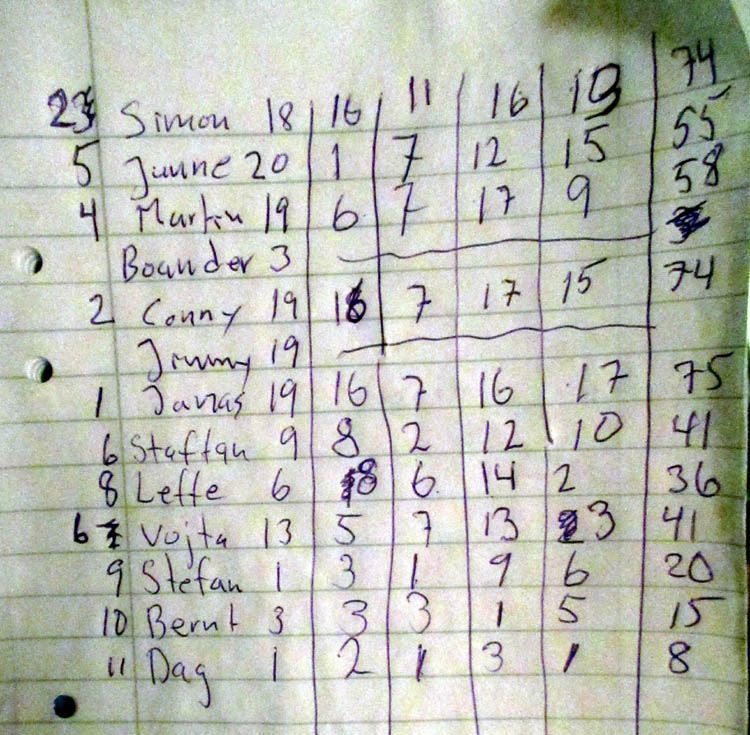 2 Simon 18 16 11 16 13 74
5 Janne 20 1 7 12 15 55
4 Martin 19 6 7 17 9 58
Boander 3
2 Conny 19 16 7 17 15 74
Jimmy 19
1 Jonas 19 16 7 16 17 75
6 Staffan 9 8 2 12 10 41
8 Leffe 6 8 6 14 2 36
6 Vojta 13 5 7 13 3 41
9 Stefan 1 3 1 9 6 20
10 Bernt 3 3 3 1 5 15
11 Dag 1 2 1 3 1 8